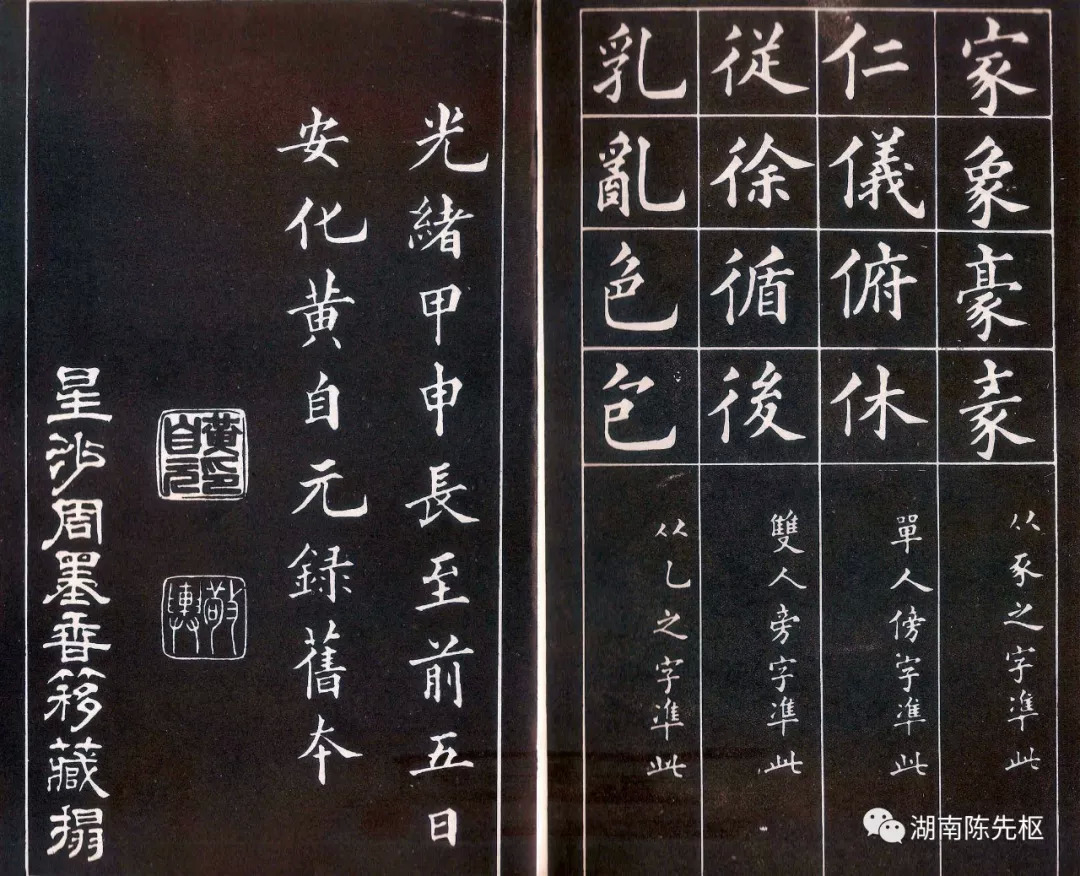 家象豪毫
从豕之字準此
仁儀俯休
單人傍字準此
従徐循後
雙人旁字準此
乳亂色包
从乚之字準此
光緒甲申長至前五日
安化黄自元録舊本
黄自元印
敬輿
星沙周墨香簃藏搨
湖南陈先枢